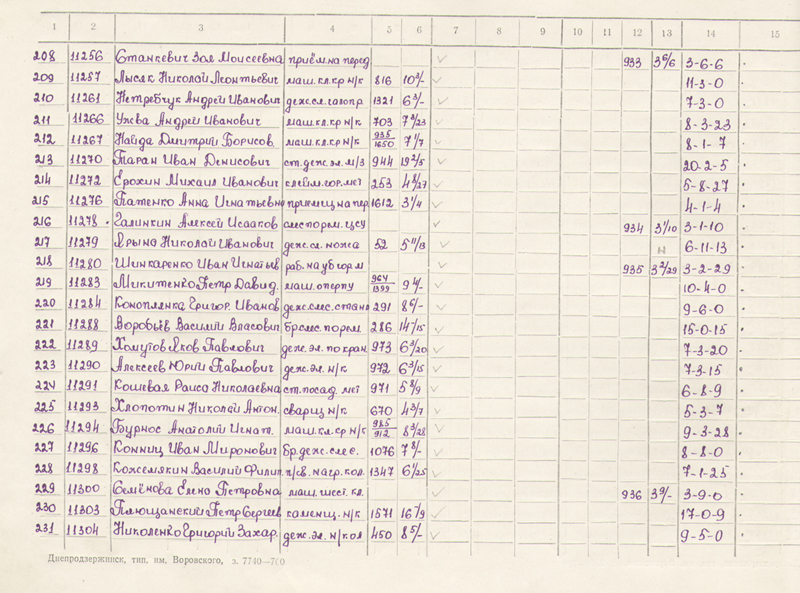 1 2 3 4 5 6 7 8 9 10 11 12 13 14 15
208 11256 Станкевич Зоя Моисеевна приём.на перед 933 3 6/6 3-6-6
209 11257 Лысяк Николай Леонтьевич маш.кл.кр н/к 816 10 3/- 11-3-0
210 11261 Нетребчук Андрей Иванович деж.сл.газопр. 1321 6 3/- 7-3-0
211 11266 Ужва Андрей Иванович маш.кл.кр н/к 703 7 3/23 8-3-23
212 11267 Найда Дмитрий Борисов маш.кл.кр н/к 935/1650 7 1/7 8-1-7
213 11270 Таран Иван Денисович ст.деж.эл.м/з 944 19 2/5 20-2-5
214 11272 Ерохин Михаил Иванович клейм.гор.мет 253 4 8/27 5-8-27
215 11276 Патенко Анна Игнатьевна на пер 1612 3 1/4 4-1-4
216 11278 Галинкин Алексей Исааков слес порем.цсу 934 3 1/10 3-1-10
217 11279 Ярына Николай Иванович деж.сл.ножа 52 5 11/13 6-11-13
218 11280 Шинкаренко Иван Игнатьев раб.на уб горм 935 3 2/29 3-2-29
219 11283 Микитенко Петр Давид. маш. 964/1399 9 4/- 10-4-0
220 11284 Коноплянка Григор. Иванов деж.слес.стана 291 8 6/- 9-6-0
221 11288 Воробьёв Василий Власович бр слес.порем. 286 14/15 15-0-15
222 11289 Хомутов Яков Павлович деж.эл.по кран. 973 6 3/20 7-3-20
223 11290 Алексеев Юрий Павлович деж.эл.н/к 972 6 3/15 7-3-15
224 11291 Кошевая Раиса Николаевна ст.посад.мет 971 5 8/9 6-8-9
225 11293 Хлопотин Николай Антон. сварщ н/к 670 4 3/7 5-3-7
226 11294 Бурнос Анатолий Игнат. маш.кл.ср н/к 985/912 8 3/28 9-3-28
227 11296 Конниц Иван Миронович бр.деж.слес. 1076 7 8/- 8-8-0
228 11298 Кожемякин Василий Филип. п/св.нагр.кол. 1347 6 1/25 7-1-25
229 11300 Семёнова Елена Петровна маш.шест.кл. 936 3 9/- 3-9-0
230 11303 Плющанский Петр Сергеев каменщ.н/к 1571 16 -/9 17-0-9
231 11304 Николенко Григорий Захар. деж.эл.н/кол 450 8 5/- 9-5-0
Днепродзержинск, тип. им. Воровского, з. 7740—700